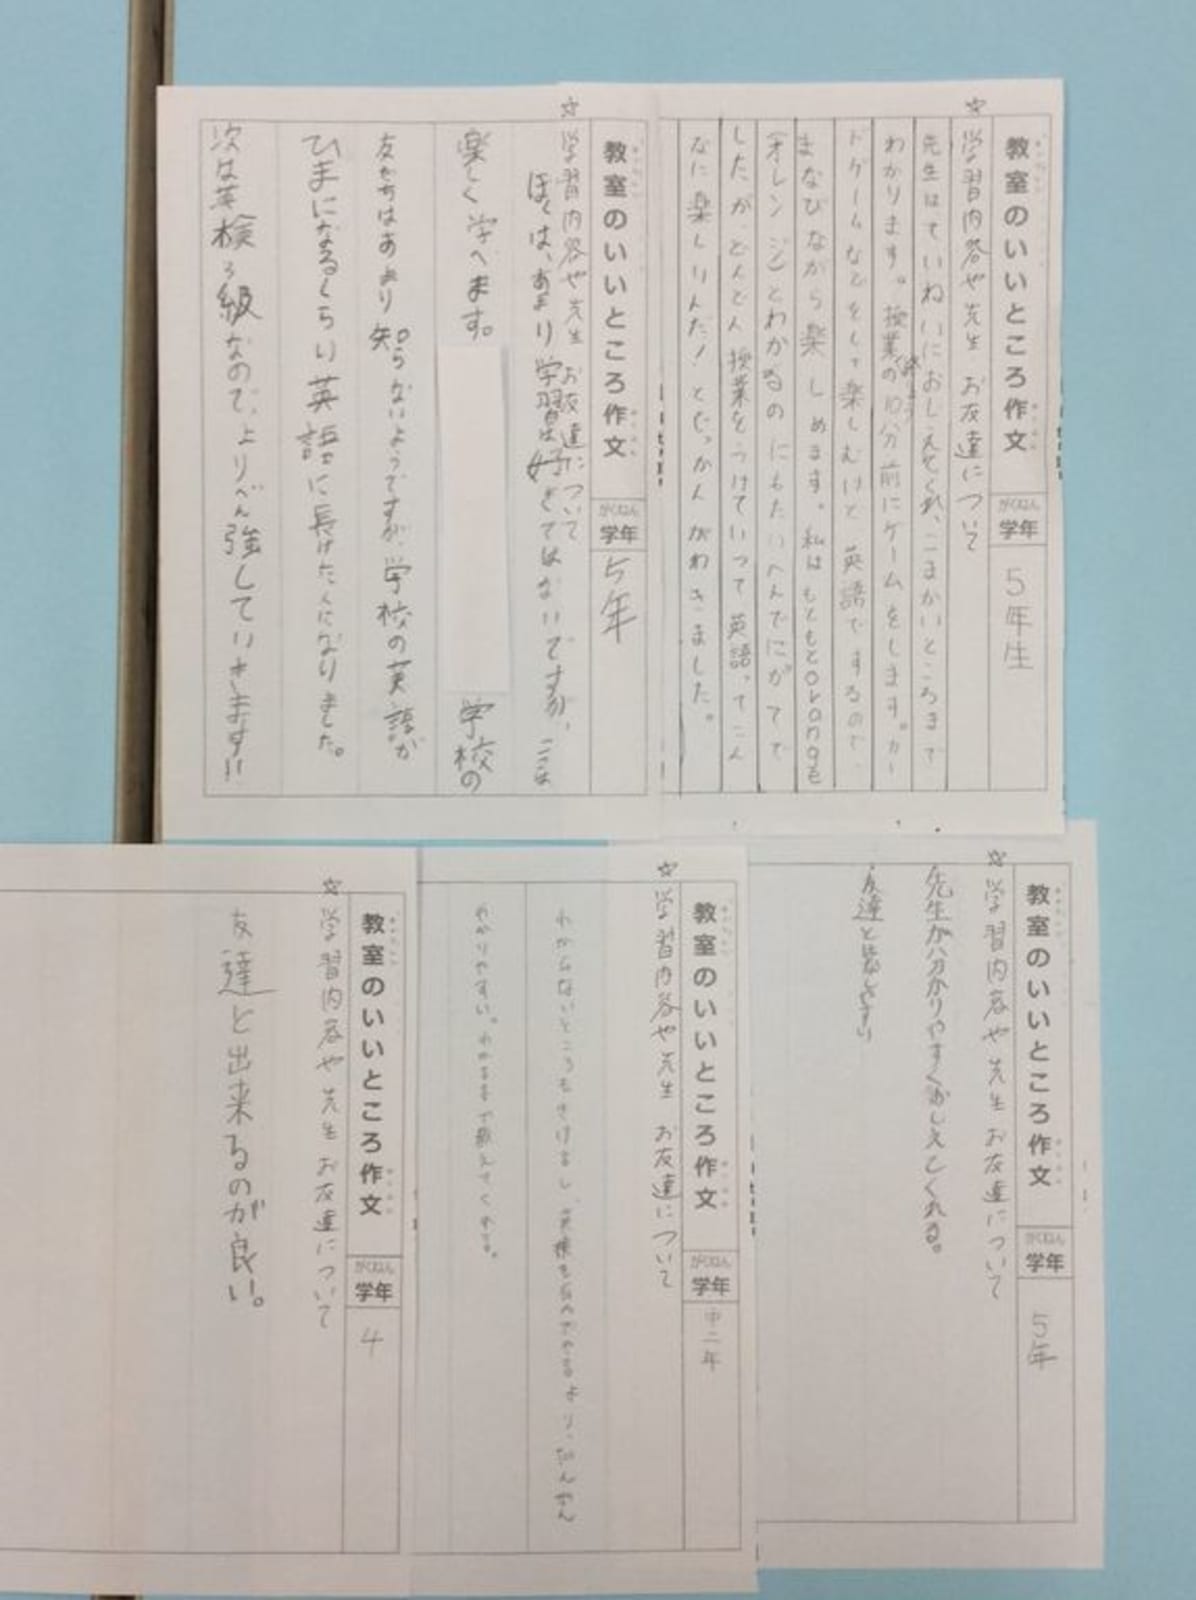 教室のいいところ作文
がくねん
学年
5年生
☆学習内容や先生 お友達について
先生はていねいにおしえてくれ、こまかいところまで
わかります。授業の終わり10分前にゲームをします。カー
ドゲームなどをして楽しむけど英語でするので、
まなびながら楽しめます。私はもともとorangeを
オレンジとわかるのにもたいへんでにがてで
したが、どんどん授業をうけていって英語ってこん
なに楽しいんだ!とじっかんがわきました。
教室のいいところ作文
がくねん
学年
5年
☆学習内容や先生 お友達について
ぼくは、あまり学習は好きではないですが、ここは
楽しく学べます。 学校の
友だちはあまり知らないようですが、学校の英語が
ひまになるくらい英語に長けた人になりました。
次は英検3級なので、よりべん強していきます!!
教室のいいところ作文
がくねん
学年
5年
☆学習内容や先生 お友達について
・先生が分かりやすくおしえてくれる。
・友達とはなしやすい
教室のいいところ作文
がくねん
学年
中二年
☆学習内容や先生 お友達について
わからないところもきけるし、英検も自分でやるより、だんぜん
わかりやすい。わかるまで教えてくれる。
教室のいいところ作文
がくねん
学年
4
☆学習内容や先生 お友達について
友達と出来るのが良い。